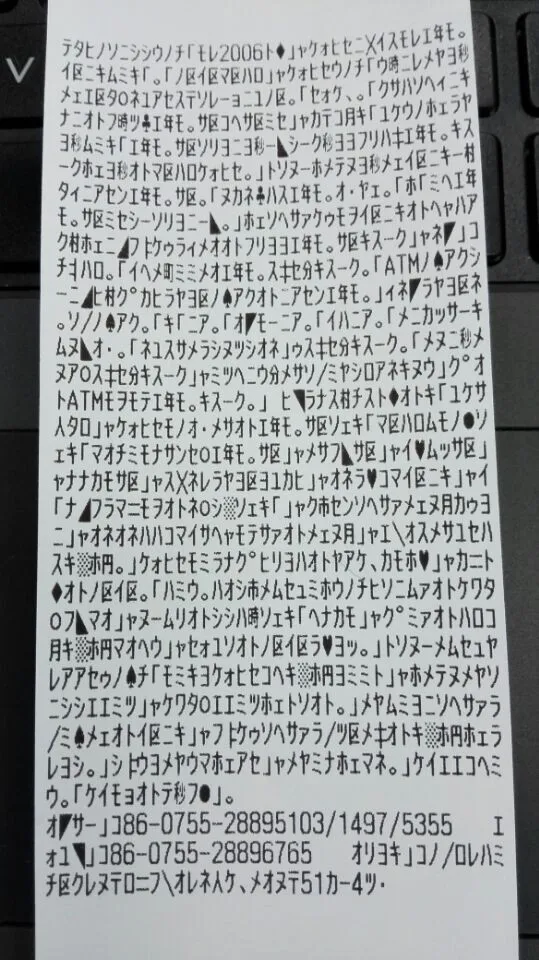 テタヒノソニシシウノチ「モレ2006ト♦」ャケォヒセニ╳イスモレエ年モ。
イ区ニキムミキ「。「ノ区イ区マ区ハロ」ャケォヒセウノチ「ウ時ニレメヤヨ秒
メェエ区タ○ネユアセステソレーョニユノ区。「セォケ、。「クサハソヘィニキ
ナニオトフ時ツ♣エ年モ。サ区コヘサ区ミセ」ャカテコ月キ「ユケウノホェラヤ
ヨ秒ムミキ「エ年モ。サ区ソリヨニヨ秒ー◣シーク秒ヨヨフリハキエ年モ。キス
ークホェヨ秒オトマ区ハロケォヒセ。」トソヌーホメテヌヨ秒メェイ区ニキー村
タィニアセンエ年モ。サ区。「ヌカネ♣ハスエ年モ。オ・ヤェ。「ホ「ミヘエ年
モ。サ区ミセシーソリヨニー◣。」ホェソヘサァケゥモヲイ区ニキオトヘャハア
ク村ホェニ◢フトケゥライメオオトフリヨヨエ年モ。サ区キスーク」ャネ◤」コ
チヨハロ。「イヘメ町ミミメオエ年モ。スキセ分キスーク。「ATMノ♠アクシ
ーニ◢ヒ村ク゚カヒラヤヨ区ノ♠アクオトニアセンエ年モ。」ィネ◤ラヤヨ区ネ
。ソ/ノ♠アク。「キ「ニア。「オ◤モーニア。「イハニア。「メニカッサーキ
ムヌ◣オ・。「ネユスサメラシヌツシオネ」ゥスキセ分キスーク。「メヌニ秒メ
ヌア○スキセ分キスーク」ャミツヘニウ分メサソ/ミヤシロアネキヌウ」ク゚オ
トATMモヲモテエ年モ。キスーク。」ヒ◥ラナス村チスト♦オトキ「ユケサ
人タロ」ャケォヒセモノオ・メサオトエ年モ。サ区ソェキ「マ区ハロムモノ●ソ
ェキ「マオチミモナサンセ○エ年モ。サ区」ャメサフ◣サ区」ャイ♥ムッサ区」
ャナナカモサ区」ャス╳ネレラヤヨ区ヨユカヒ」ャオネラ♥コマイ区ニキ」ャイ
「ナ◢フラマニモヲオトネ○シ▒ソェキ「」ャク市センソヘサァメェヌ月カゥヨ
ニ」ャオネオネハハコマイサヘャモテサァオトメェヌ月」ャエ\オスメサユセハ
スキ▒ホ円。」ケォヒセモミラナク゚ヒリヨハオトヤアケ、カモホ♥」ャカニト
♦オトノ区イ区。「ハミウ。ハオシホメムセュミホウノチヒソニムァオトケワタ
○フ◣マオ」ャヌームリオトシシハ時ソェキ「ヘナカモ」ャク゚ミァオトハロコ
月キ▒ホ円マオヘウ」ャセォユソオトノ区イ区ラ♥ヨッ。」トソヌーメムセュヤ
レアアセゥノ♠チ「モミキヨケォヒセコヘキ▒ホ円ヨミミト」ャホメテヌメヤソ
ニシシエエミツ」ャケワタ○エエミツホェトソオト。」メヤムミヨニソヘサァラ
/ミ♠メェオトイ区ニキ」ャフトケゥソヘサァラ/ツ区メキオトキ▒ホ円ホェラ
レヨシ。」シトウヨメヤウマホェアセ」ャメヤミナホェマネ。」ケイエエコヘミ
ウ。「ケイモョオトテ秒フ●」。
オ◤サー」コ86-0755-28895103/1497/5355 エ
ォユ◥」コ86-0755-28896765 オリヨキ」コノ/ロレハミ
チ区クレヌテロニフ\オレネ人ケ、メオヌテ51カー4ツ・